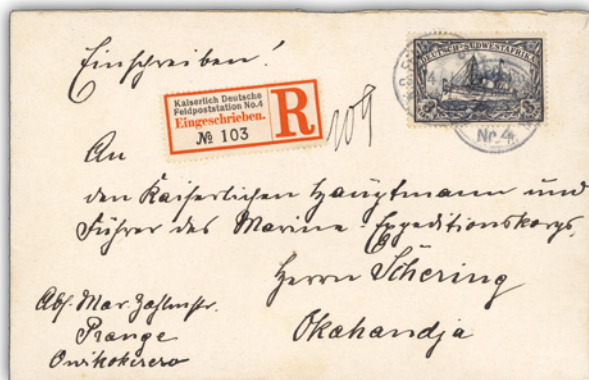 Einschreiben!
DEUTSCH-SÜDWESTAFRIKA
Kaiserlich Deutsche
Feldpoststation No.4
Eingeschrieben.
№ 103
R
109
Nr. 4
An
den Kaiserlichen Hauptmann und
Führer des Marine-Expeditionskorps,
Herrn Schering
Okahandja
Abs. Mar. Zahlmstr.
Prange
Owikokorero